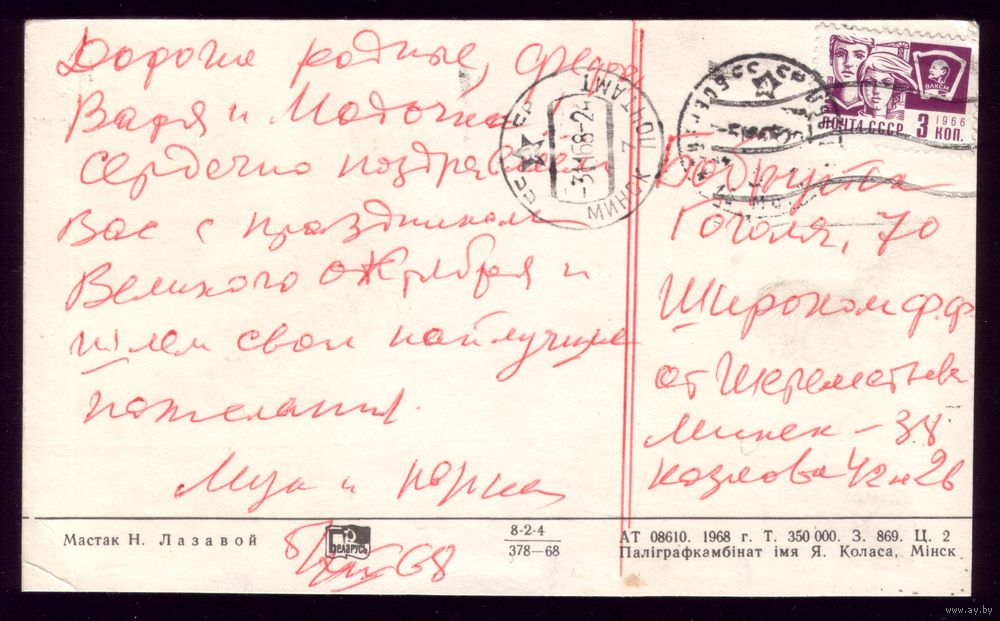 Дорогие родные, Федя,
Варя и Моточка
сердечно поздравляем
Вас с праздником
Великого Октября и
шлем свои наилучшие
пожелания.
Муза и
68
МИНСК 7 ПОЧТАМТ
-3 11 68-24
БССР СССР
ВЛКСМ
1966
ПОЧТА СССР 3 КОП.
Бобруйск
Гоголя, 70
Широком Ф.Ф.
от Шереметьева
Минск-38
Козлова 42 н 26
Мастак Н. Лазавой
БЕЛАРУСЬ
8-2-4
378—68
АТ 08610. 1968 г. Т. 350 000. З. 869. Ц. 2
Паліграфкамбінат імя Я. Коласа, Мінск
www.ay.by